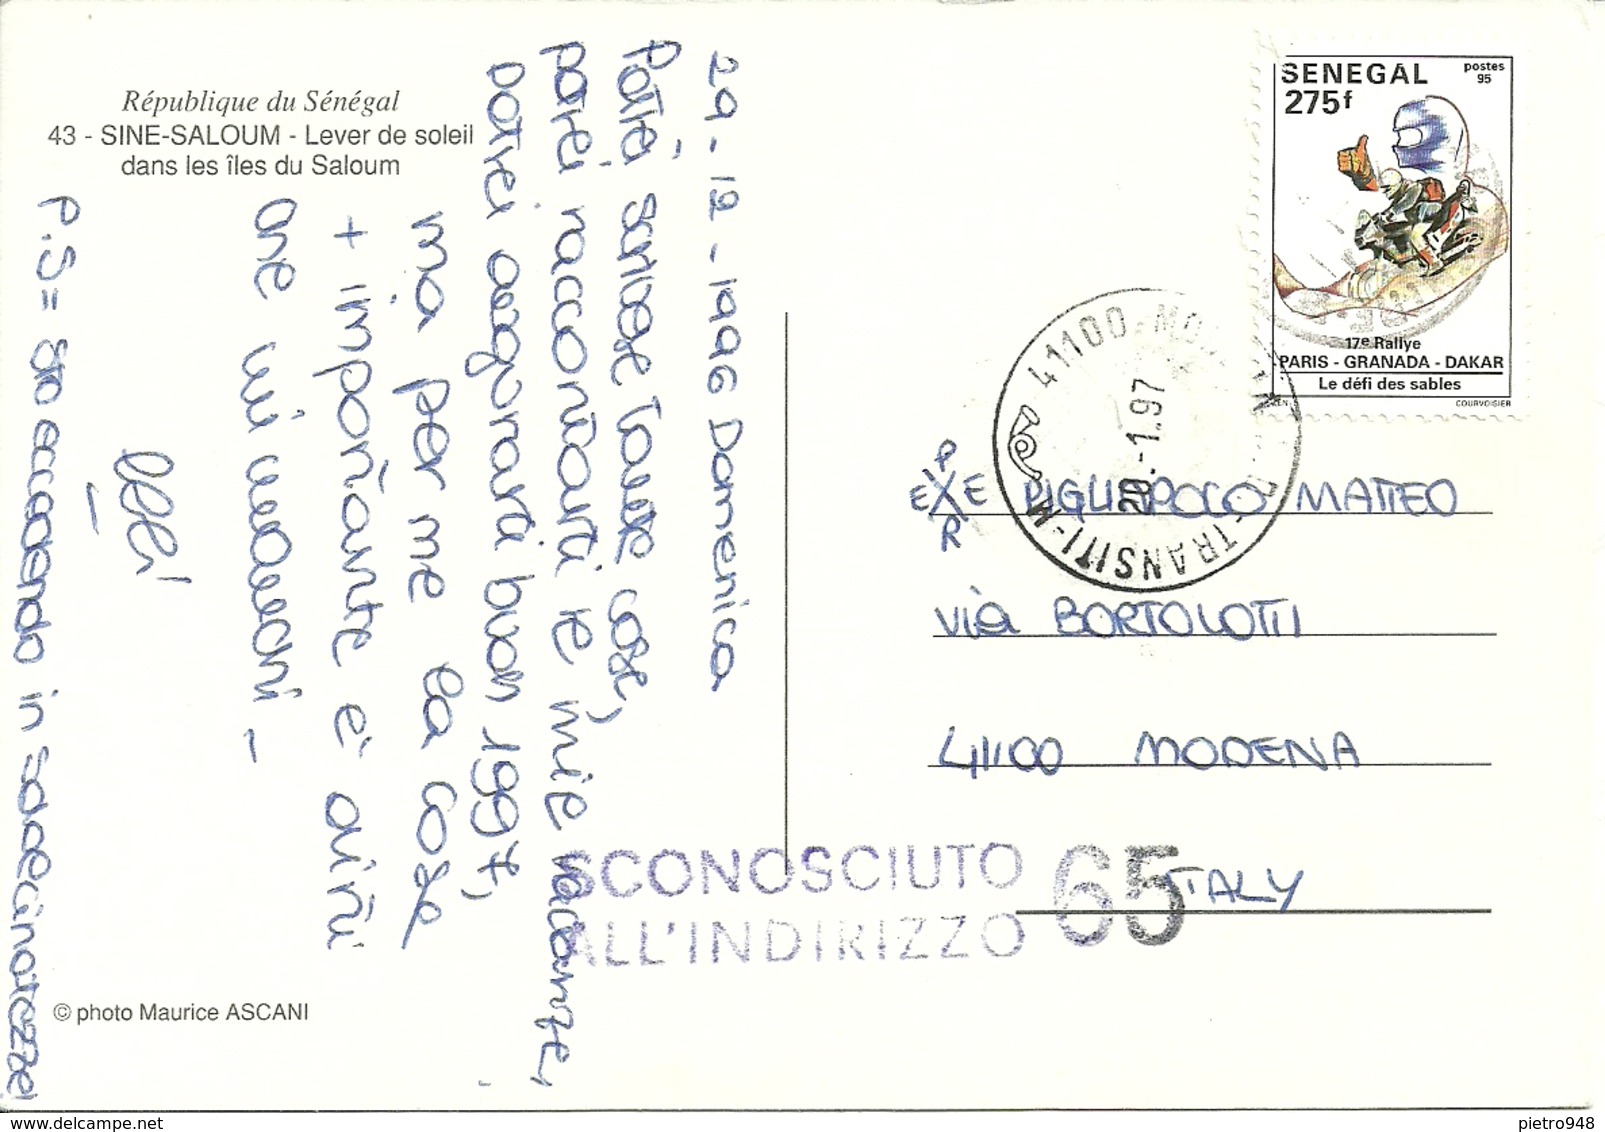 République du Sénégal
43 - SINE-SALOUM - Lever de soleil
dans les îles du Saloum
29-12-1996 Domenica
Potrei scrivere tante cose,
potrei raccontarti le mie vacanze,
potrei augurarti buon 1997,
ma per me la cosa
+ importante è dirti
che mi manchi -
P.S= sto eccedendo in sdolcinatezze
© photo Maurice ASCANI
SENEGAL
postes
95
275f
17e Rallye
PARIS - GRANADA - DAKAR
Le défi des sables
COURVOISIER
41100
20.-1.97
TRANSITI
PER
MATTEO
VIA BORTOLOTTI
41100 MODENA
ITALY
SCONOSCIUTO
ALL'INDIRIZZO
65
pietro948
www.delcampe.net